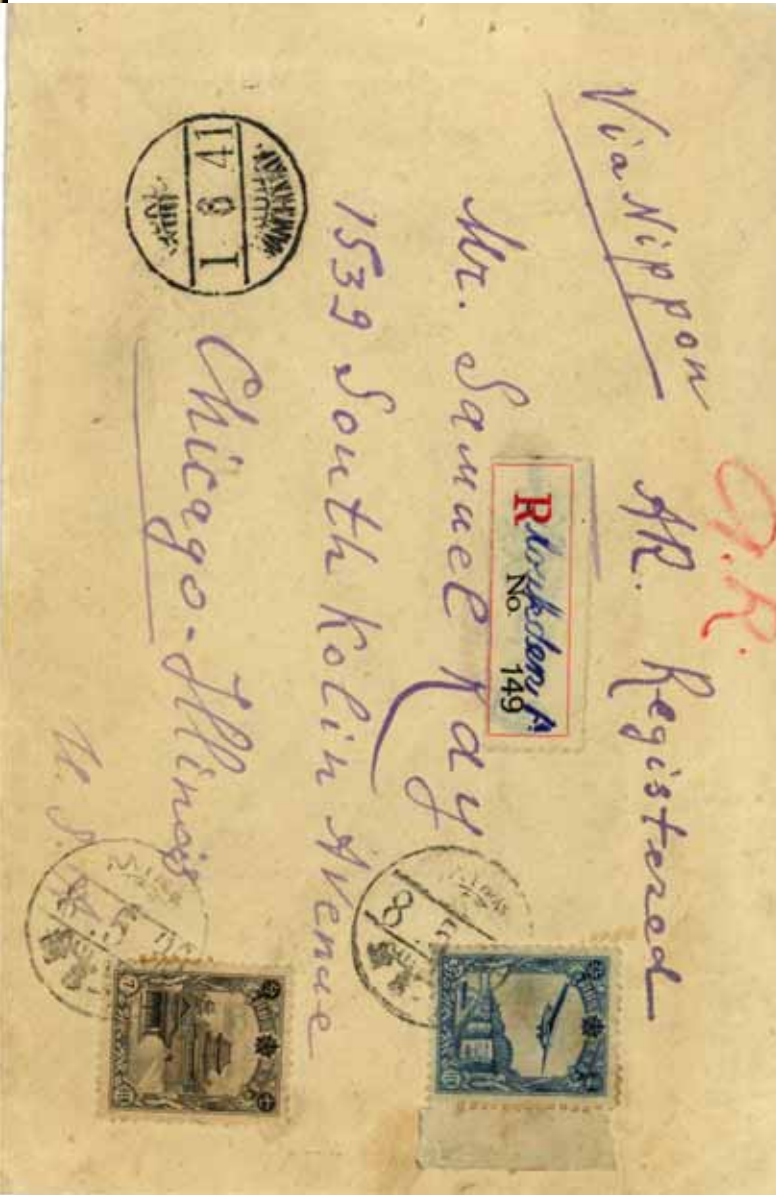 Via Nippon
A.R.
AR. Registered
R Moukden A.
No. 149
Mr. Samuel Kay
1539 South Kolin Avenue
Chicago-Illinois
U. S. A.
1 8 41
8
7